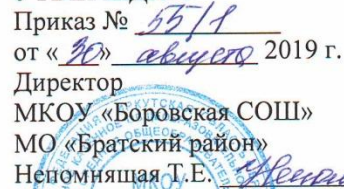 Приказ № 55/1
от «30» августа 2019 г.
Директор
МКОУ «Боровская СОШ»
МО «Братский район»
Непомнящая Т.Е.